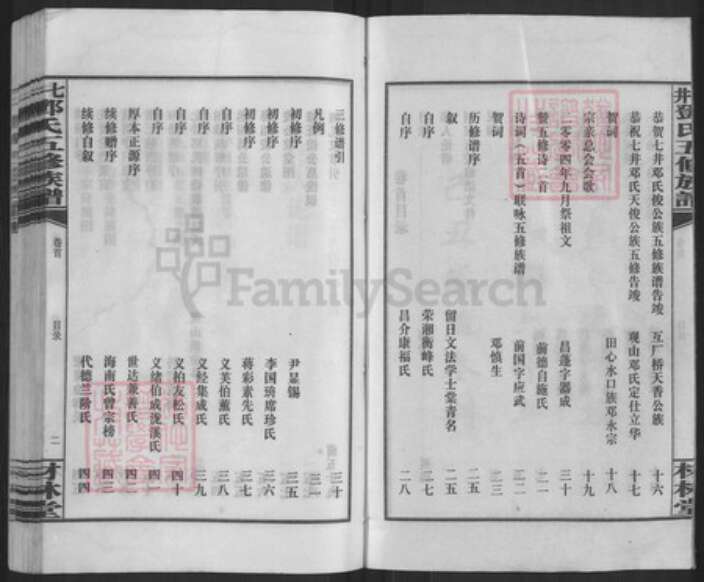 恭贺七井邓氏俊公族五修族谱告竣　互厂桥天香公族　十六
恭祝七井邓氏天俊公族五修告竣　观山邓氏定仕立华　十七
贺词　田心水口族邓永宗　十八
宗亲总会会歌　十九
二零零四年九月祭祖文　昌蓬字器成　二十
赞五修诗二首　前德自施氏　二一
诗词（五首）联咏五修族谱　前国字应武　二二
贺词　邓慎生　二三
历修谱序
叙　留日文法学士棠青名　二五
自序　荣湘衡峰氏　二七
自序　昌介康福氏　二八
三修谱引　三十
凡例　三一
初修序　尹显锡　三五
初修序　李国琐席珍氏　三六
初修序　蒋彩素先氏　三七
自序　义美伯薰氏　三八
自序　义经集成氏　三九
自序　义柏友松氏　四十
自序　义绪伯成泷溪氏　四一
厚本正源序　世达兼善氏　四二
续修赠序　海南氏曾宗榜　四三
续修自叙　代德兰阶氏　四四
七邓氏五修族谱
卷首
目录
二
材林堂
井邓氏五修族谱
材林堂
FamilySearch